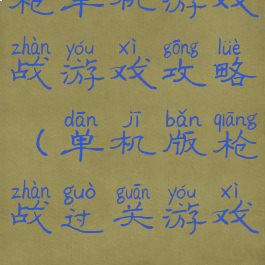 枪单机游戏
zhàn yóu xì gōng lüè
战游戏攻略
dān jī bǎn qiāng
(单机版枪
zhàn guò guān yóu xì
战过关游戏